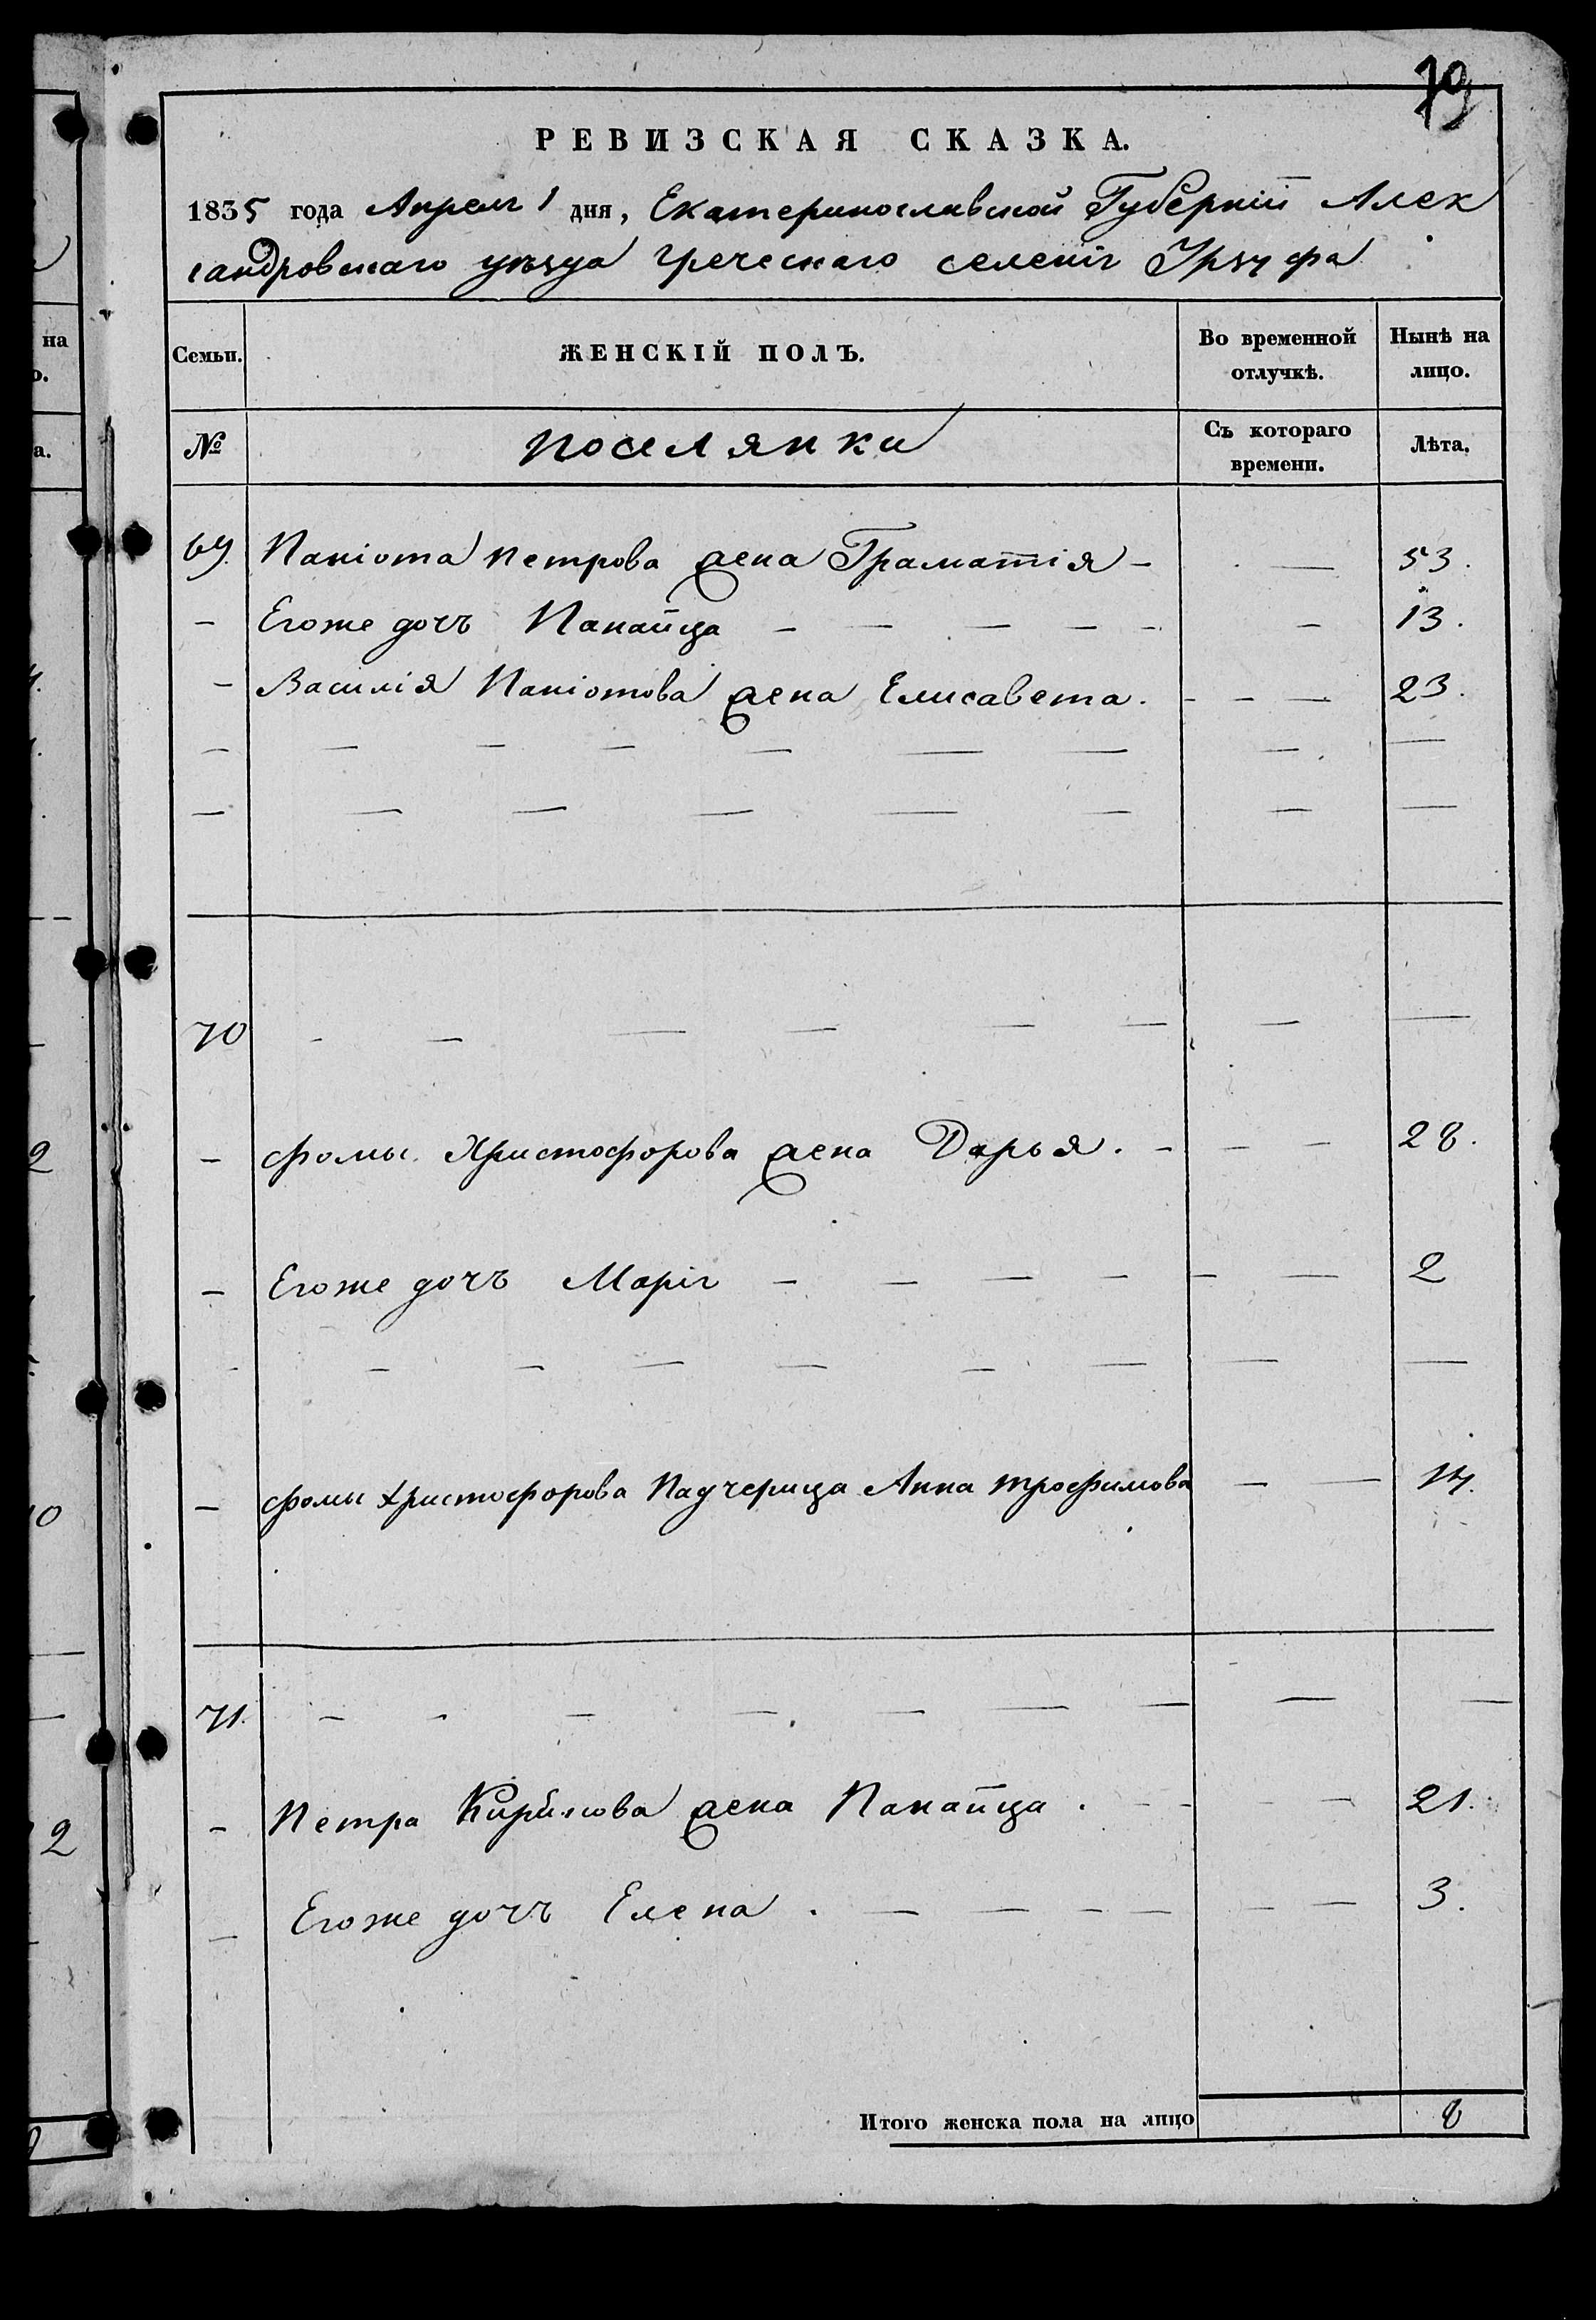 79
РЕВИЗСКАЯ СКАЗКА.
1835 года Апреля 1 дня, Екатеринославской Губерніи Алек
сандровскаго уѣзда греческаго селенія Урзуфа
Семьи. ЖЕНСКІЙ ПОЛЪ. Во временной отлучкѣ. Нынѣ на лицо.
№ Поселянки Съ котораго времени. Лѣта.
69. Паніота Петрова жена Граматія — — 53.
— Егоже дочь Панаица — — — — — — 13.
— Василія Паніотова жена Елисавета. — — — 23.
— — — — — — — — —
— — — — — — — —
70 — — — — — — — —
— Фомы Христофорова жена Дарья. — — — 28.
— Егоже дочь Марія — — — — — — 2
— — — — — — — — —
— Фомы Христофорова Падчерица Анна Трофимова — — 14.
71. — — — — — — — — —
— Петра Кирилова жена Панаица. — — — — 21.
— Егоже дочь Елена. — — — — — — 3.
Итого женска пола на лицо 8
на
о.
а.
2
10
12